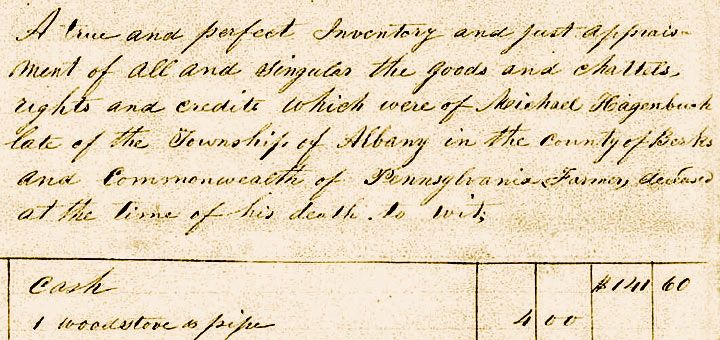 A true and perfect Inventory and just apprais-
ment of all and singular the goods and chattels,
rights and credits which were of Michael Hagenbuch
late of the Township of Albany in the county of Berks
and Commonwealth of Pennsylvania Farmer, deceased
at the time of his death. to wit;
Cash $141 60
1 woodstove & pipe 4 00